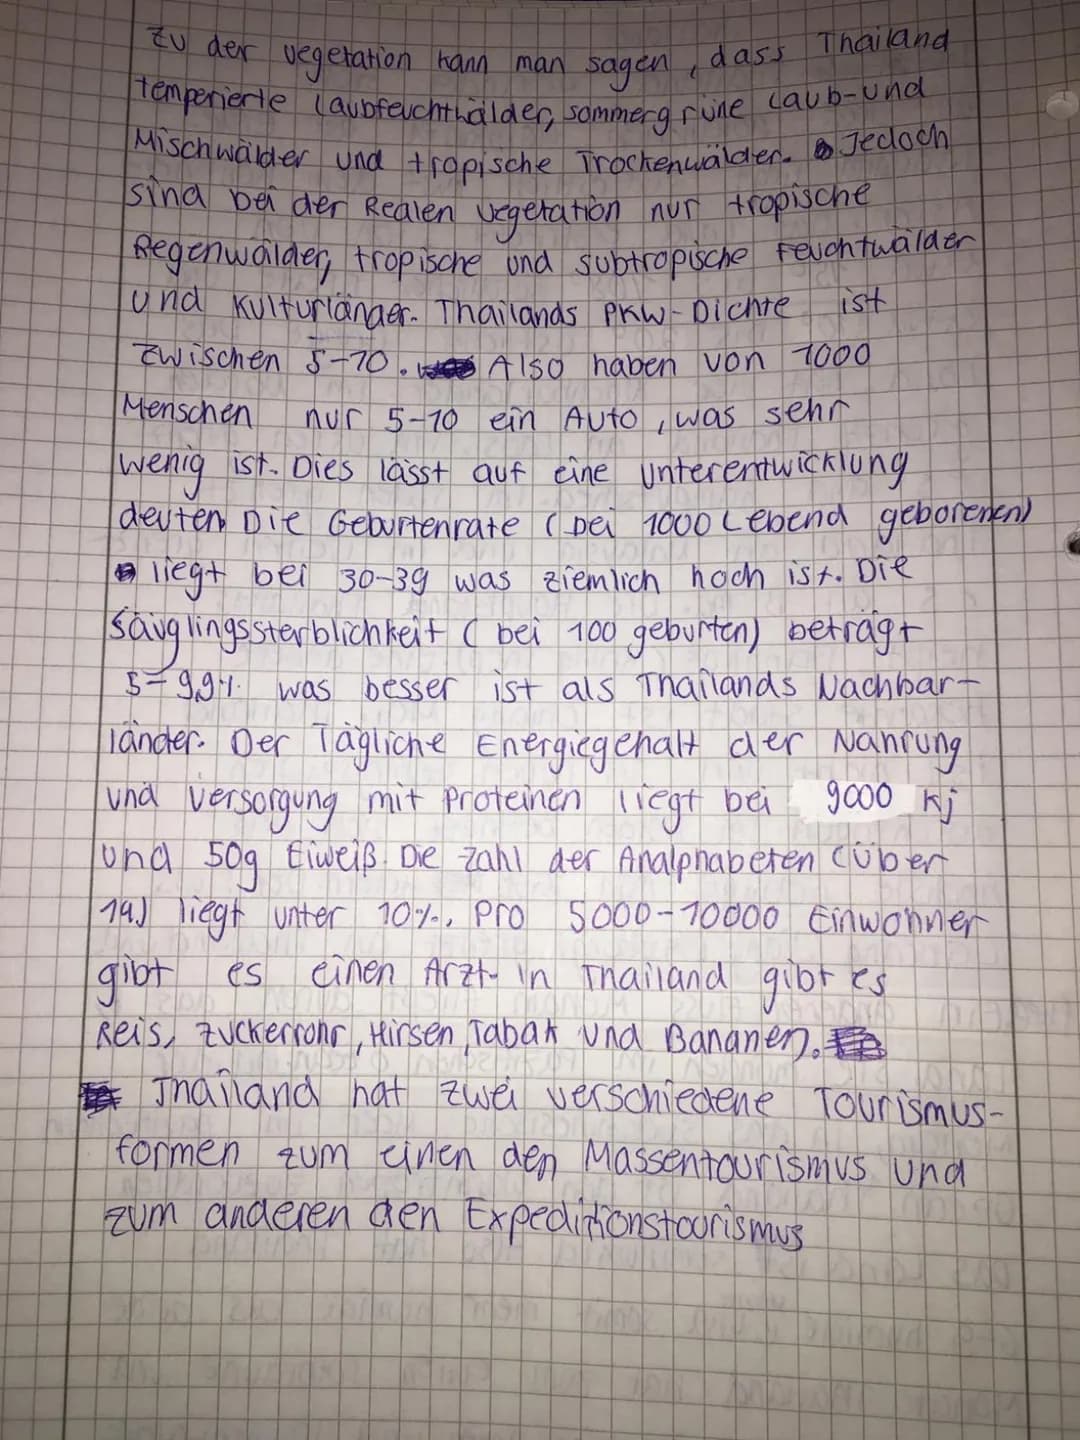 Zu der vegetation kann man sagen, dass Thailand
temperierte Laubfeuchtwälder, sommergrüne Laub-und
Mischwälder und tropische Trockenwälder. Jedoch
sind bei der Realen vegetation nur tropische
Regenwälder, tropische und subtropische Feuchtwälder
und Kulturländer. Thailands PKW-Dichte ist
zwischen 5-10. Also haben von 1000
Menschen nur 5-10 ein Auto, was sehr
wenig ist. Dies lässt auf eine Unterentwicklung
deuten Die Geburtenrate (bei 1000 Lebend geborenen)
liegt bei 30-39 was ziemlich hoch ist. Die
Säuglingssterblichkeit (bei 100 geburten) beträgt
5-9,9% was besser ist als Thailands Nachbar-
länder. Der Tägliche Energiegehalt der Nahrung
und Versorgung mit Proteinen liegt bei 9000 kj
und 50g Eiweiß. Die Zahl der Analphabeten (über
14J) liegt unter 10%. Pro 5000-10000 Einwohner
gibt es einen Arzt. In Thailand gibt es
Reis, Zuckerrohr, Hirsen, Tabak und Bananen.
Thailand hat zwei verschiedene Tourismus-
formen zum einen den Massentourismus und
zum anderen den Expeditionstourismus